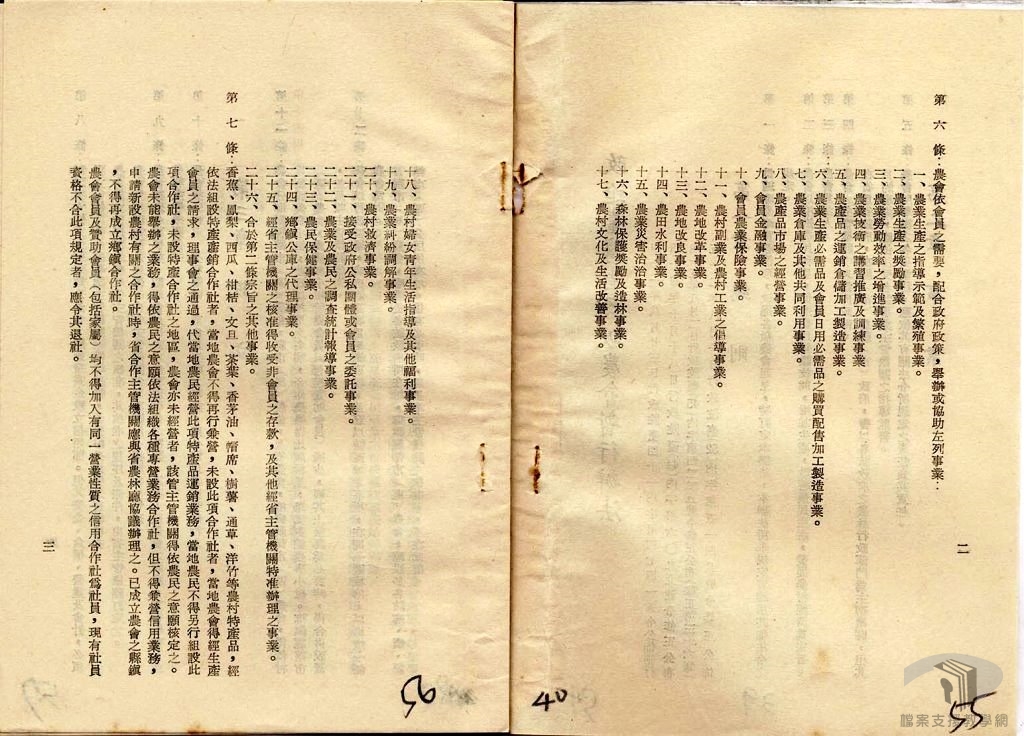 第六條：農會依會員之需要，配合政府政策，舉辦或協助左列事業：
一、農業生產之指導示範及繁殖事業。
二、農業生產之獎勵事業。
三、農業勞動效率之增進事業。
四、農業技術之講習推廣及訓練事業
五、農產品之運銷倉儲加工製造事業。
六、農業生產必需品及會員日用必需品之購買配售加工製造事業。
七、農業倉庫及其他共同利用事業。
八、農產品市場之經營事業。
九、會員金融事業。
十、會員農業保險事業。
十一、農村副業及農村工業之倡導事業。
十二、農地改革事業。
十三、農地改良事業。
十四、農田水利事業。
十五、農業災害治事業。
十六、森林保護獎勵及造林事業。
十七、農村文化及生活改善事業。
二
40
55
檔案支援教學網
十八、農村婦女青年生活指導及其他福利事業。
十九、農業糾紛調解事業。
二十、農村救濟事業。
二十一、接受政府公私團體或會員之委託事業。
二十二、農業及農民之調查統計報導事業。
二十三、農民保健事業。
二十四、鄉鎮公庫之代理事業。
二十五、經省主管機關之核准得收受非會員之存款，及其他經省主管機關特准辦理之事業。
二十六、合於第二條宗旨之其他事業。
第七條：香蕉、鳳梨、西瓜、柑桔、文旦、茶葉、香茅油、蓆、樹薯、通草、洋竹等農村特產品，經
依法組設特產產銷合作社者，當地農會不得再行兼營，未設此項合作社者，當地農會得經生產
會員之請求，理事會之通過，代當地農民經營此項特產品運銷業務，當地農民不得另行組設此
項合作社，未設特產合作社之地區，農會亦未經營者，該管主管機關得依農民之意願核定之。
農會未能舉辦之業務，得依農民之意願依法組織各種專營業務合作社，但不得兼營信用業務，
申請新設農村有關之合作社時，省合作主管機關應與省農林廳協議辦理之。已成立農會之縣鎮
，不得再成立鄉鎮合作社。
農會會員及贊助會員（包括家屬）均不得加入有同一營業性質之信用合作社為社員，現有社員
資格不合此項規定者，應令其退社。
三
56